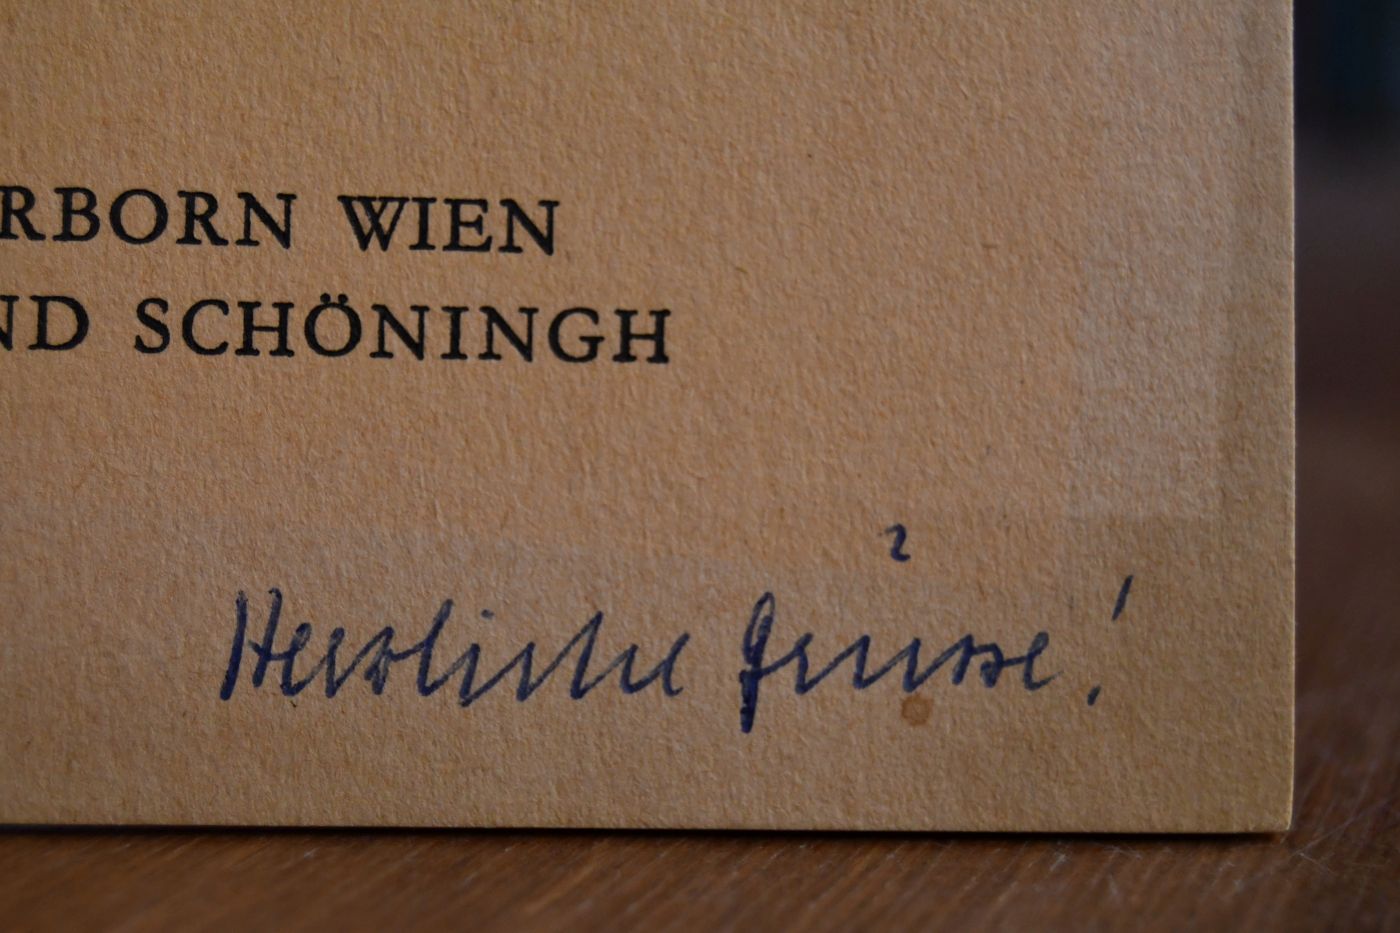 RBORN WIEN
ND SCHÖNINGH
Herzliche Grüsse!